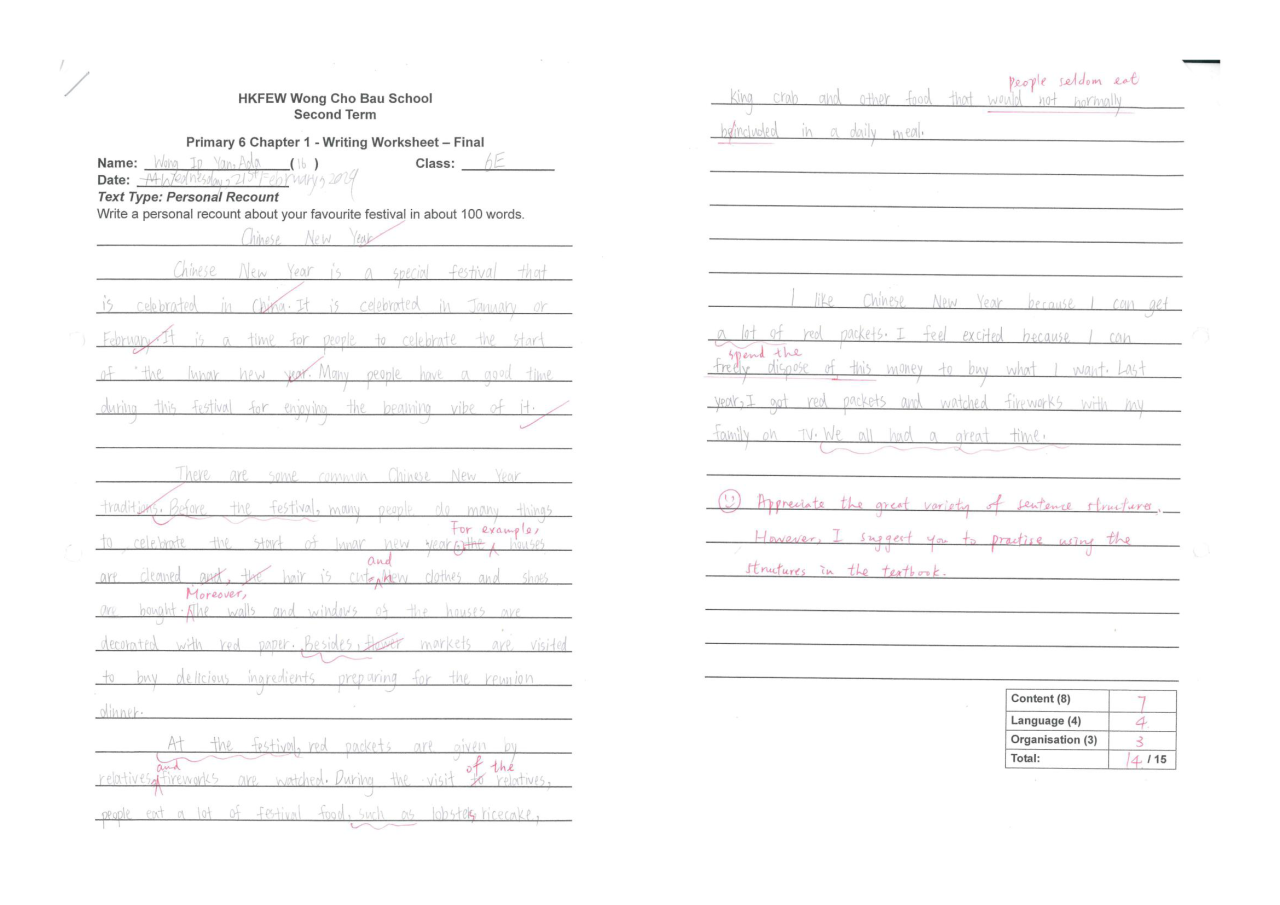 HKFEW Wong Cho Bau School
Second Term
Primary 6 Chapter 1 - Writing Worksheet – Final
Name: Wong Ip Yan, Ada (16) Class: 6E
Date: Wednesday, 21st February, 2024
Text Type: Personal Recount
Write a personal recount about your favourite festival in about 100 words.
Chinese New Year
Chinese New Year is a special festival that
is celebrated in China. It is celebrated in January or
February. It is a time for people to celebrate the start
of the lunar new year. Many people have a good time
during this festival for enjoying the beaming vibe of it.
There are some common Chinese New Year
traditions. Before the festival, many people do many things
For example,
to celebrate the start of lunar new year the houses
and
are cleaned and, the hair is cut. New clothes and shoes
Moreover,
are bought. The walls and windows of the houses are
decorated with red paper. Besides, flower markets are visited
to buy delicious ingredients preparing for the reunion
dinner.
At the festival, red packets are given by
and of the
relatives, fireworks are watched. During the visit to relatives,
people eat a lot of festival food, such as lobster, ricecake,
people seldom eat
king crab and other food that would not normally
be included in a daily meal.
I like Chinese New Year because I can get
a lot of red packets. I feel excited because I can
spend the
freely dispose of this money to buy what I want. Last
year, I got red packets and watched fireworks with my
family on TV. We all had a great time.
Appreciate the great variety of sentence structures.
However, I suggest you to practise using the
structures in the textbook.
Content (8) 7
Language (4) 4
Organisation (3) 3
Total: 14 / 15